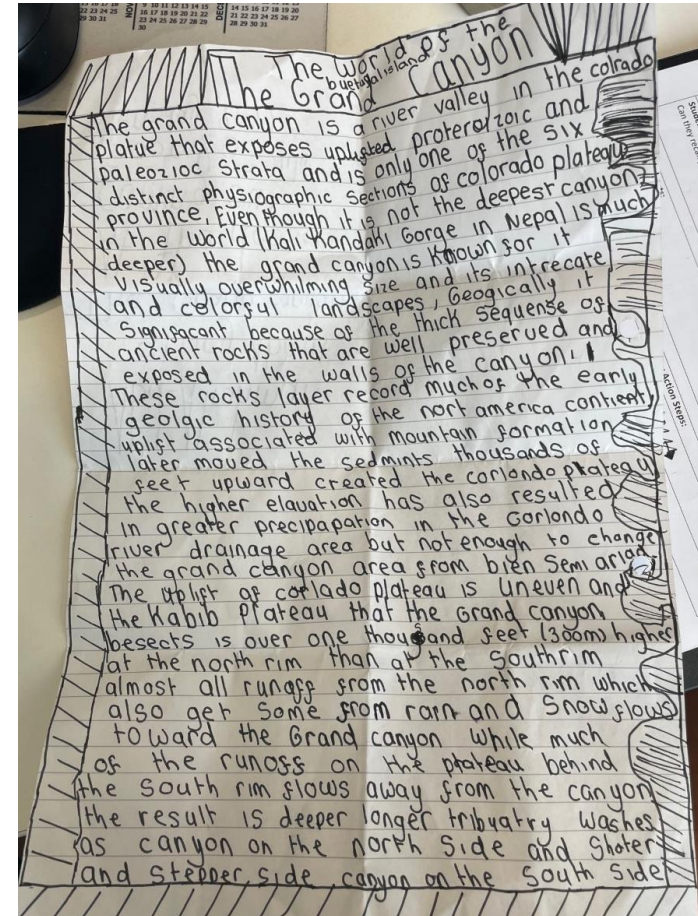 22 23 24 25
29 30 31
NOV
9 10 11 12 13 14 15
16 17 18 19 20 21 22
23 24 25 26 27 28 29
30
DEC
14 15 16 17 18 19 20
21 22 23 24 25 26 27
28 29 30 31
The world of the
The Grand Canyon
The grand canyon is a river valley in the colrado
platue that exposes uplisted proterozoic and
paleozioc Strata and is only one of the six
distinct physiographic Sections of colorado plateau
province, Even though it is not the deepest canyon
in the world (Kali Kandaki Gorge in Nepal is much
deeper) the grand canyon is known for it
visually overwhilming size and its intrecate
and colorful landscapes, Geogically it
Signifacant because of the thick sequense of
ancient rocks that are well preserved and
exposed in the walls of the canyon.
These rocks layer record much of the early
geolgic history of the nort america contient,
uplift associated with mountain formation
later moved the sedmints thousands of
feet upward created the corlondo plateau
the higher elavation has also resulted
in greater precipapation in the Corlondo
river drainage area but not enough to change
the grand canyon area from bien Semi ariad
The uplift of corlado plateau is uneven and
the Kabib Plateau that the Grand canyon
besects is over one thousand feet (300m) higher
at the north rim than at the Southrim
almost all runoff from the north rim which
also get Some from rain and Snow flows
toward the Grand canyon while much
of the runoff on the plateau behind
the South rim flows away from the canyon
the result is deeper longer tribuatry washes
as canyon on the north Side and Shoter
and stepper side canyon on the South Side
Can they reca
Action Steps: